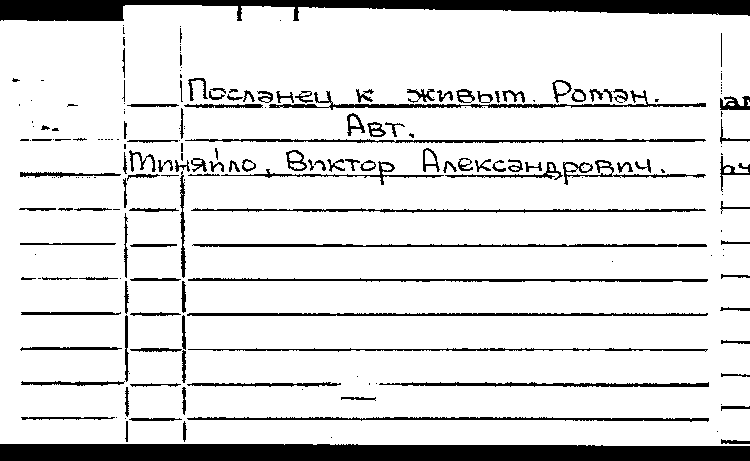 Посланец к живым. Роман.
Авт.
Миняйло, Виктор Александрович.